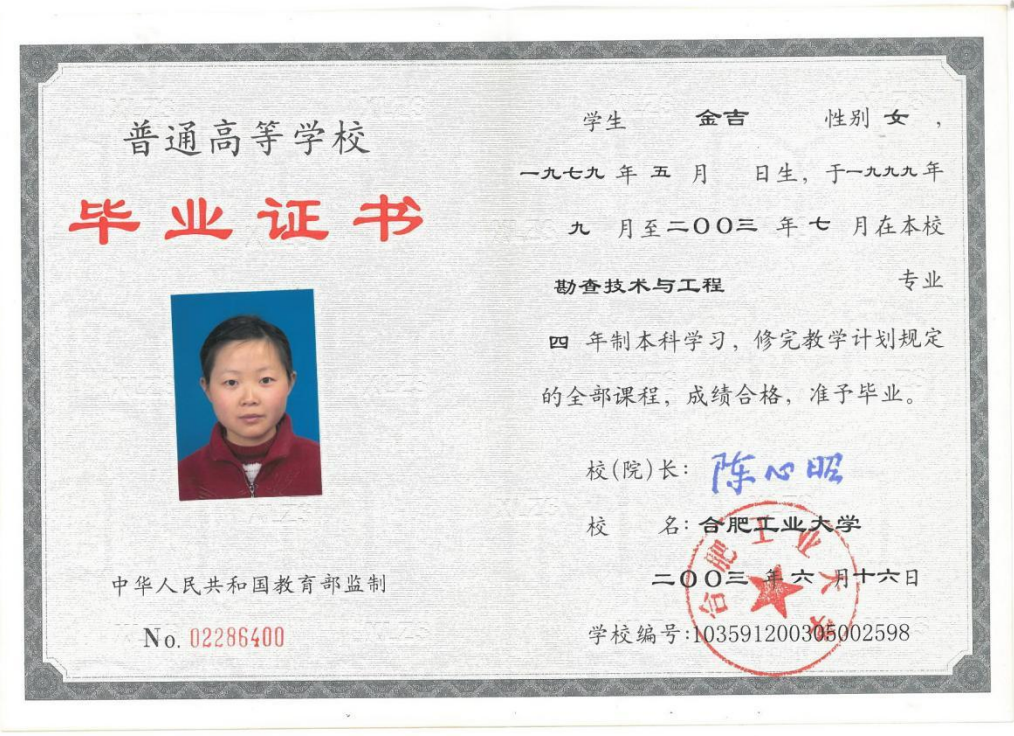 普通高等学校
毕业证书
中华人民共和国教育部监制
No. 02286400
学生 金吉 性别 女，
一九七九 年 五 月 日生，于一九九九年
九 月至二〇〇三 年 七 月在本校
勘查技术与工程 专业
四 年制本科学习，修完教学计划规定
的全部课程，成绩合格，准予毕业。
校(院)长：陈心昭
校 名：合肥工业大学
二〇〇三 年 六 月十六日
学校编号:103591200305002598
合肥工业大学